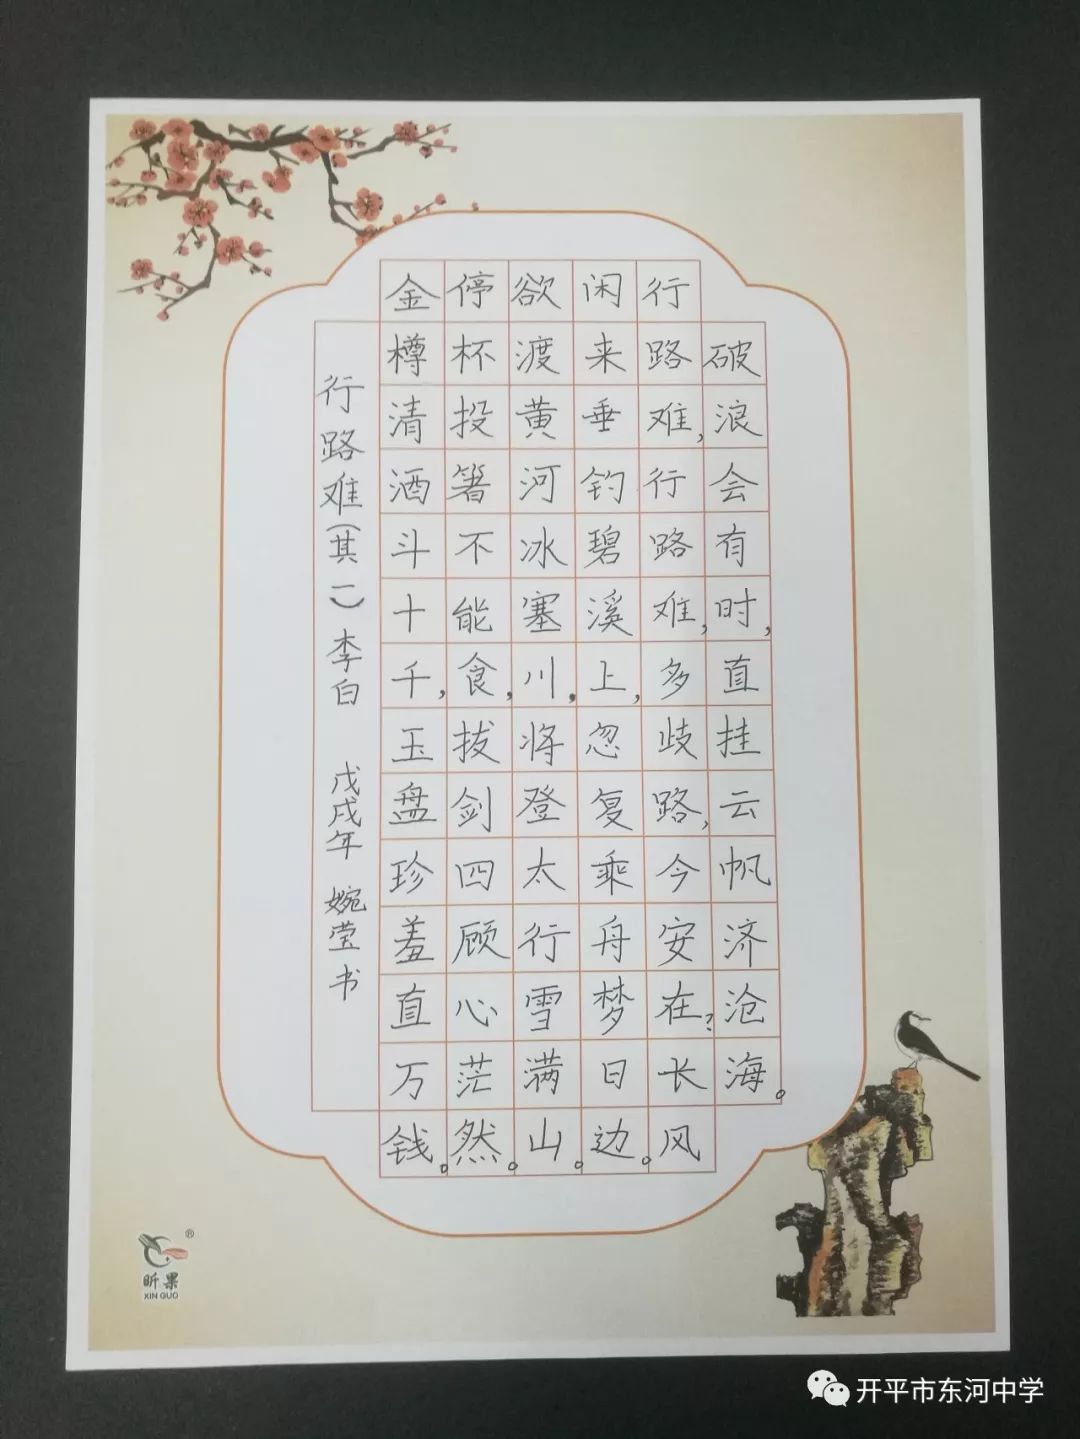 行路难(其一)李白 戊戌年 婉莹书
金樽清酒斗十千,玉盘珍羞直万钱。
停杯投箸不能食,拔剑四顾心茫然。
欲渡黄河冰塞川,将登太行雪满山。
闲来垂钓碧溪上,忽复乘舟梦日边。
行路难,行路难,多歧路,今安在?长风
破浪会有时,直挂云帆济沧海。
昕果®
XIN GUO
开平市东河中学